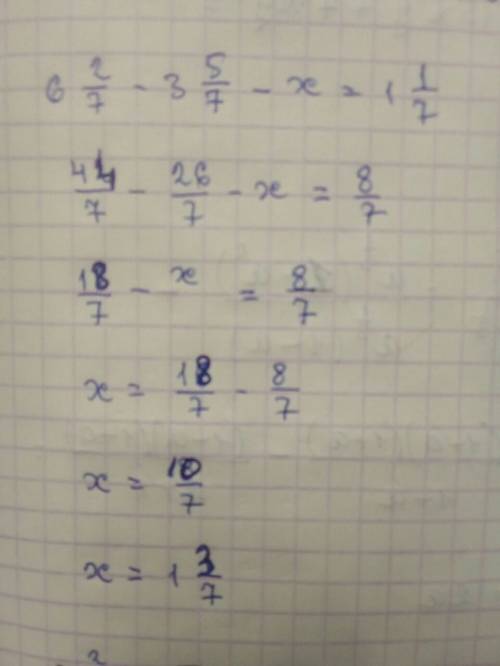 6 2/7 - 3 5/7 - x = 1 1/7
44/7 - 26/7 - x = 8/7
18/7 - x = 8/7
x = 18/7 - 8/7
x = 10/7
x = 1 3/7